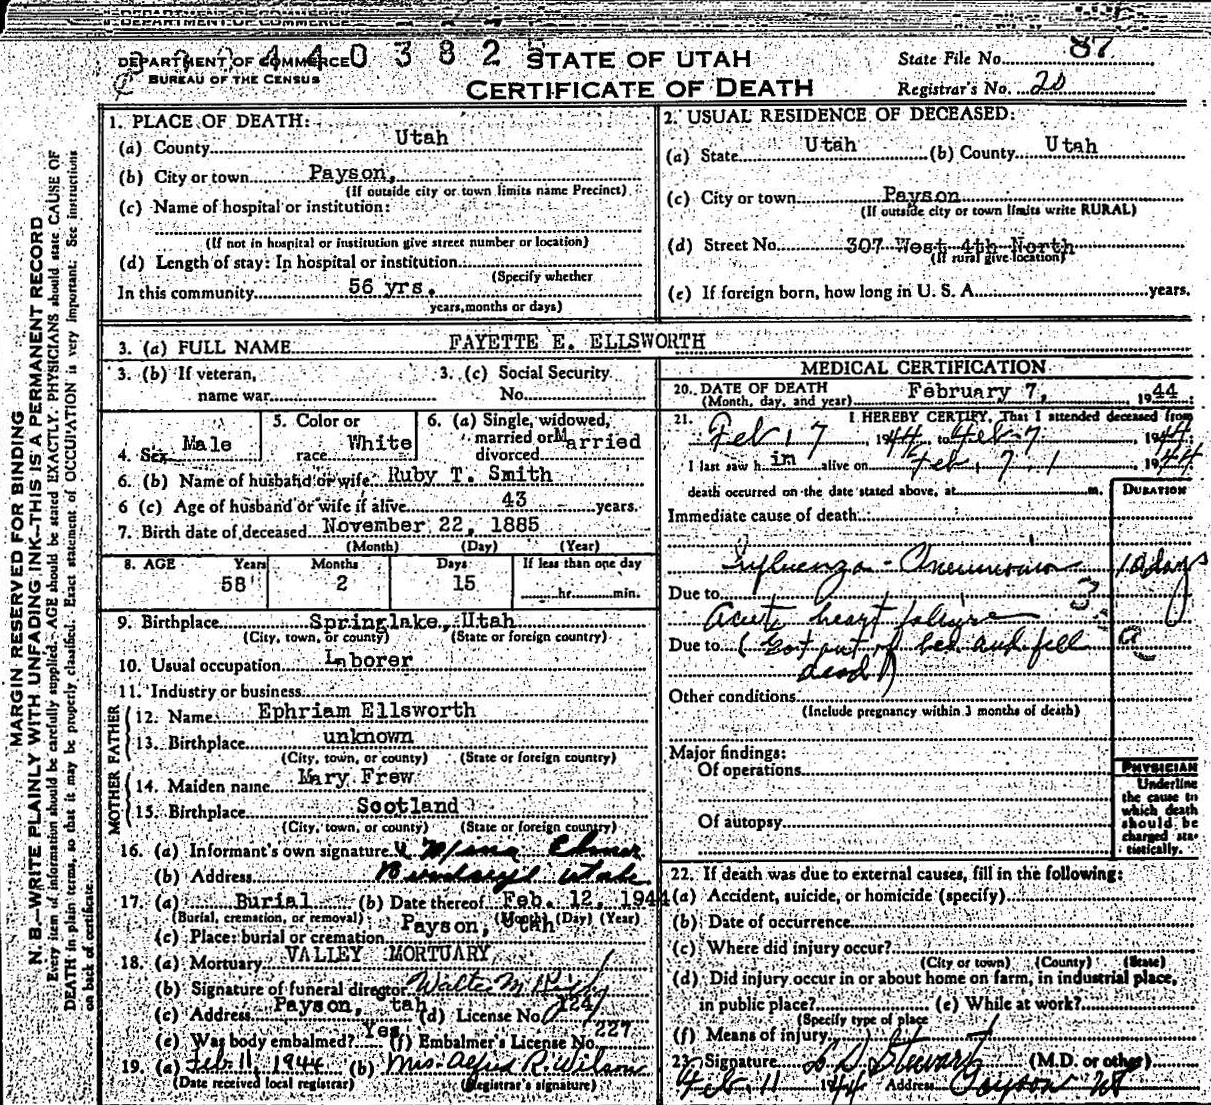 DEPARTMENT OF COMMERCE
BUREAU OF THE CENSUS
0 3 8 2
STATE OF UTAH
CERTIFICATE OF DEATH
State File No. 87
Registrar's No. 20
MARGIN RESERVED FOR BINDING
N. B.—WRITE PLAINLY WITH UNFADING INK—THIS IS A PERMANENT RECORD
Every item of information should be carefully supplied. AGE should be stated EXACTLY. PHYSICIANS should state CAUSE OF
DEATH in plain terms, so that it may be properly classified. Exact statement of OCCUPATION is very important. See instructions
on back of certificate.
1. PLACE OF DEATH:
(a) County Utah
(b) City or town Payson,
(If outside city or town limits name Precinct)
(c) Name of hospital or institution:
(If not in hospital or institution give street number or location)
(d) Length of stay: In hospital or institution
(Specify whether
In this community 56 yrs.
years, months or days)
2. USUAL RESIDENCE OF DECEASED:
(a) State Utah (b) County Utah
(c) City or town Payson
(If outside city or town limits write RURAL)
(d) Street No. 307 West 4th North
(If rural give location)
(e) If foreign born, how long in U. S. A. years.
3. (a) FULL NAME FAYETTE E. ELLSWORTH
3. (b) If veteran,
name war
3. (c) Social Security
No.
4. Sex Male
5. Color or
race White
6. (a) Single, widowed,
married or Married
divorced
6. (b) Name of husband or wife Ruby T. Smith
6 (c) Age of husband or wife if alive 43 years.
7. Birth date of deceased November 22, 1885
(Month) (Day) (Year)
8. AGE Years Months Days If less than one day
58 2 15 hr. min.
9. Birthplace Springlake, Utah
(City, town, or county) (State or foreign country)
10. Usual occupation Laborer
11. Industry or business
FATHER
12. Name Ephriam Ellsworth
13. Birthplace unknown
(City, town, or county) (State or foreign country)
MOTHER
14. Maiden name Mary Frew
15. Birthplace Scotland
(City, town, or county) (State or foreign country)
16. (a) Informant's own signature Elmer
(b) Address Utah
17. (a) Burial (b) Date thereof Feb. 12, 1944
(Burial, cremation, or removal) (Month) (Day) (Year)
(c) Place: burial or cremation Payson, Utah
18. (a) Mortuary VALLEY MORTUARY
(b) Signature of funeral director Walter M
(c) Address Payson, tah (d) License No. 124
(e) Was body embalmed? Yes (f) Embalmer's License No. 227
19. (a) Feb. 11, 1944 (b) Mrs. Alfred R. Wilson
(Date received local registrar) (Registrar's signature)
MEDICAL CERTIFICATION
20. DATE OF DEATH February 7, 1944
(Month, day, and year)
21. I HEREBY CERTIFY, That I attended deceased from
Feb, 7, 1944, to Feb 7, 1944
I last saw him alive on Feb, 7, 1944
death occurred on the date stated above, at m.
DURATION
Immediate cause of death
Influenza - Pneumonia 10 days
Due to
Acute heart failure
Due to (Got out of bed and fell
dead)
Other conditions
(Include pregnancy within 3 months of death)
Major findings:
Of operations
Of autopsy
PHYSICIAN
Underline
the cause to
which death
should be
charged sta-
tistically.
22. If death was due to external causes, fill in the following:
(a) Accident, suicide, or homicide (specify)
(b) Date of occurrence
(c) Where did injury occur?
(City or town) (County) (State)
(d) Did injury occur in or about home on farm, in industrial place,
in public place? (e) While at work?
(Specify type of place
(f) Means of injury
23. Signature L D Stewart (M.D. or other)
Feb. 11 1944 Address Payson Ut